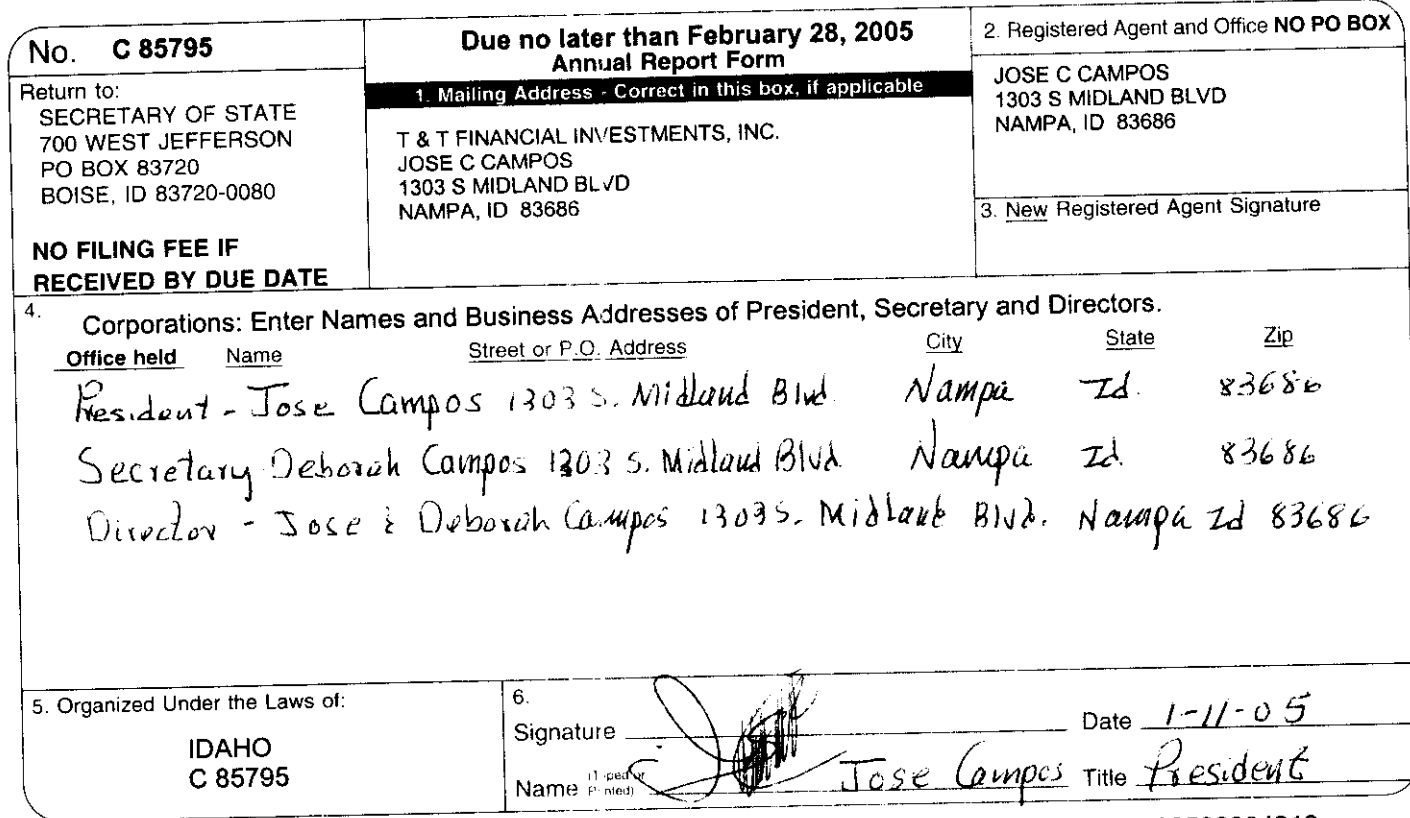 No. C 85795
Return to:
SECRETARY OF STATE
700 WEST JEFFERSON
PO BOX 83720
BOISE, ID 83720-0080
NO FILING FEE IF
RECEIVED BY DUE DATE
Due no later than February 28, 2005
Annual Report Form
1. Mailing Address - Correct in this box, if applicable
T & T FINANCIAL INVESTMENTS, INC.
JOSE C CAMPOS
1303 S MIDLAND BLVD
NAMPA, ID 83686
2. Registered Agent and Office NO PO BOX
JOSE C CAMPOS
1303 S MIDLAND BLVD
NAMPA, ID 83686
3. New Registered Agent Signature
4. Corporations: Enter Names and Business Addresses of President, Secretary and Directors.
Office held Name Street or P.O. Address City State Zip
President - Jose Campos 1303 S. Midland Blvd Nampa Id. 83686
Secretary Deborah Campos 1303 S. Midland Blvd Nampa Id. 83686
Director - Jose & Deborah Campos 1303 S. Midland Blvd. Nampa Id 83686
5. Organized Under the Laws of:
IDAHO
C 85795
6.
Signature Date 1-11-05
Name (Typed or Printed) Jose Campos Title President